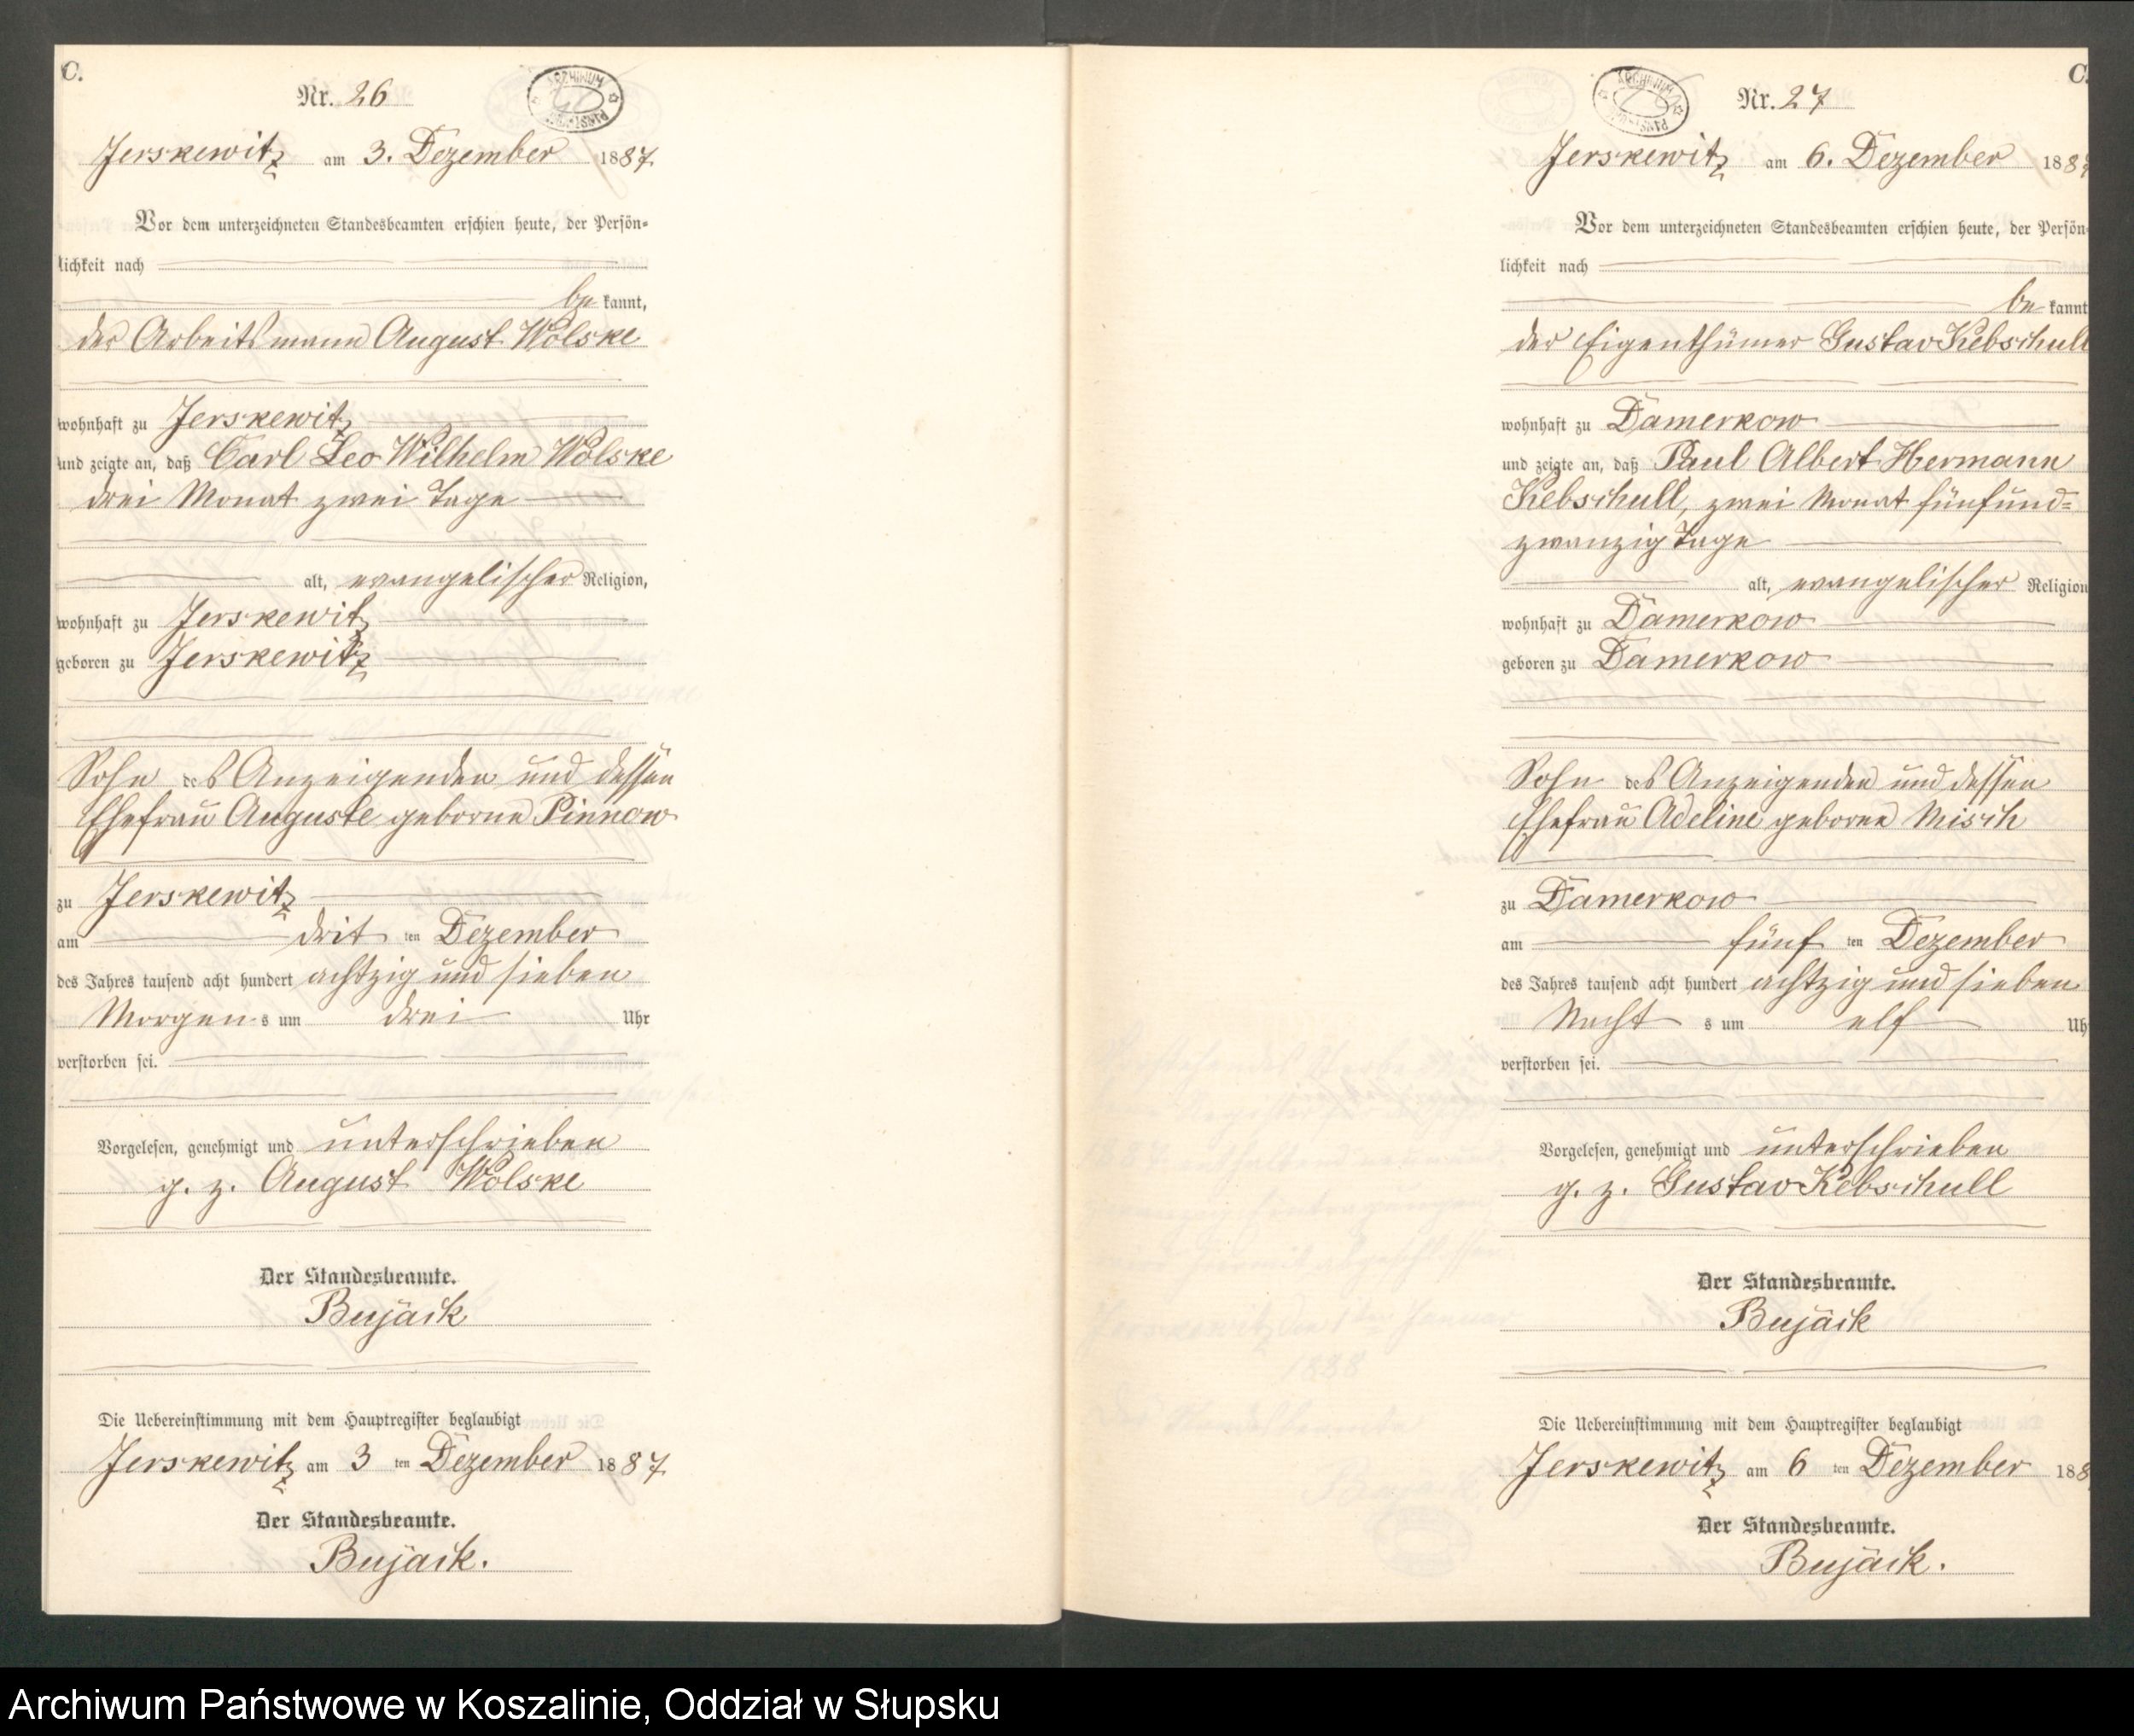 C.
Nr. 26
Jerskewitz am 3. Dezember 1887.
Vor dem unterzeichneten Standesbeamten erschien heute, der Persön-
lichkeit nach
be kannt,
der Arbeitsmann August Wolske
wohnhaft zu Jerskewitz
und zeigte an, daß Carl Leo Wilhelm Wolske
drei Monat zwei Tage
alt, evangelischer Religion,
wohnhaft zu Jerskewitz
geboren zu Jerskewitz
Sohn des Anzeigenden und dessen
Ehefrau Auguste geborne Pinnow
zu Jerskewitz
am dritten Dezember
des Jahres tausend acht hundert achtzig und sieben
Morgens um drei Uhr
verstorben sei.
Vorgelesen, genehmigt und unterschrieben
g. z. August Wolske
Der Standesbeamte.
Bujack
Die Uebereinstimmung mit dem Hauptregister beglaubigt
Jerskewitz am 3 ten Dezember 1887.
Der Standesbeamte.
Bujack.
C.
Nr. 27
Jerskewitz am 6. Dezember 1887
Vor dem unterzeichneten Standesbeamten erschien heute, der Persön-
lichkeit nach
be kannt
der Eigenthümer Gustav Kebschull
wohnhaft zu Damerkow
und zeigte an, daß Paul Albert Hermann
Kebschull, zwei Monat fünfund=
zwanzig Tage
alt, evangelischer Religion
wohnhaft zu Damerkow
geboren zu Damerkow
Sohn des Anzeigenden und dessen
Ehefrau Adeline geborne Misch
zu Damerkow
am fünften Dezember
des Jahres tausend acht hundert achtzig und sieben
Nachts um elf Uh
verstorben sei.
Vorgelesen, genehmigt und unterschrieben
g. z. Gustav Kebschull
Der Standesbeamte.
Bujack
Die Uebereinstimmung mit dem Hauptregister beglaubigt
Jerskewitz am 6 ten Dezember 188
Der Standesbeamte.
Bujack.
Archiwum Państwowe w Koszalinie, Oddział w Słupsku